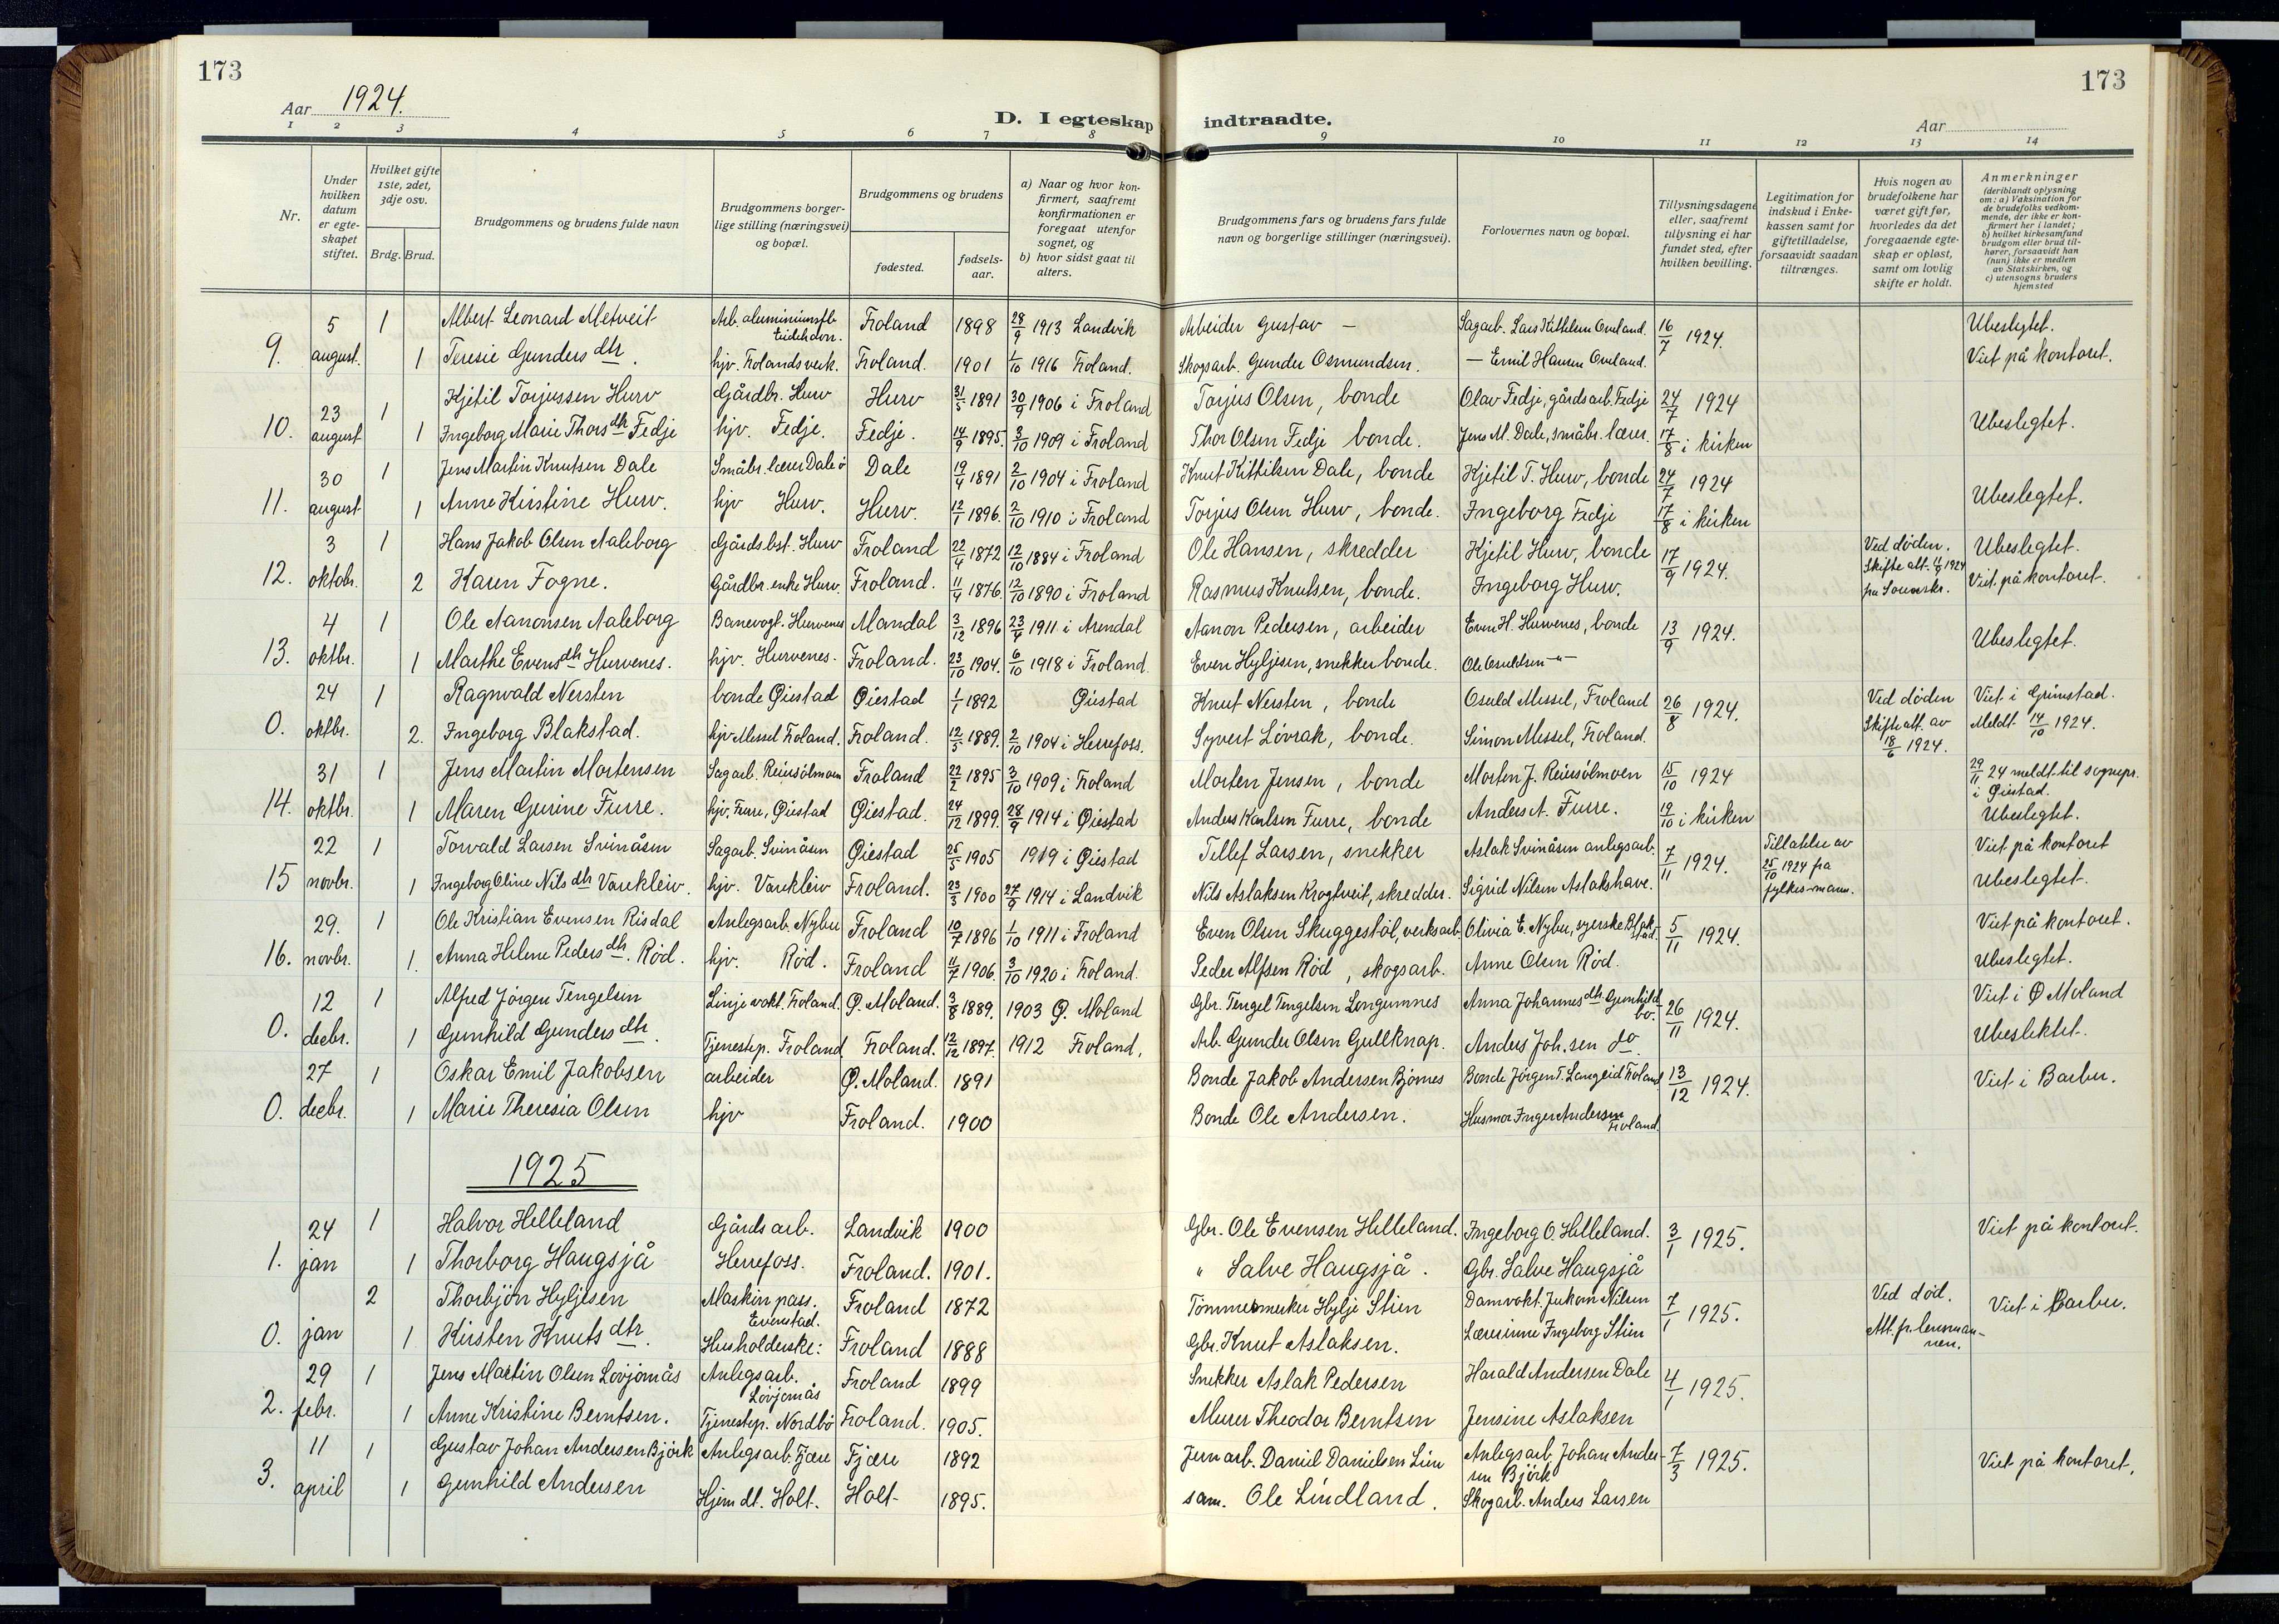 173
173
Aar 1924.
D. I egteskap indtraadte.
Aar
1 2 3 4 5 6 7 8 9 10 11 12 13 14
Nr.
Under hvilken datum er egteskapet stiftet.
Hvilket gifte 1ste, 2det, 3dje osv.
Brdg. Brud.
Brudgommens og brudens fulde navn
Brudgommens borgerlige stilling (næringsvei) og bopæl.
Brudgommens og brudens
fødested.
fødselsaar.
a) Naar og hvor konfirmert, saafremt konfirmationen er foregaat utenfor sognet, og
b) hvor sidst gaat til alters.
Brudgommens fars og brudens fars fulde navn og borgerlige stillinger (næringsvei).
Forlovernes navn og bopæl.
Tillysningsdagene eller, saafremt tillysning ei har fundet sted, efter hvilken bevilling.
Legitimation for indskud i Enkekassen samt for giftetilladelse, forsaavidt saadan tiltrænges.
Hvis nogen av brudefolkene har været gift før, hvorledes da det foregaaende egteskap er opløst, samt om lovlig skifte er holdt.
Anmerkninger (deriblandt oplysning om: a) Vaksination for de brudefolks vedkommende, der ikke er konfirmert her i landet; b) hvilket kirkesamfund brudgom eller brud tilhører, forsaavidt han (hun) ikke er medlem av Statskirken, og c) utensogns bruders hjemsted
5 1 Albert Leonard Metveit Arb. aluminiumsfb. Froland 1898 28/9 1913 Landvik Arbeider Gustav — Sagarb. Lars Kittelsen Oveland. 16/7 1924. Ubeslegtet.
9. august. 1 Teresie Gunders dtr. hjv. Frolands verk. Froland. 1901 1/10 1916 Froland. Skogsarb. Gunder Osmundsen. — Emil Hansen Oveland. Viet på kontoret.
23 1 Kjetil Torjussen Hurv Gårdbr. Hurv Hurv 31/5 1891 30/9 1906 i Froland Torjus Olsen, bonde Olav Fedje, gårdsarb. Fedje 24/7 1924
10. august 1 Ingeborg Marie Thors dtr Fedje hjv. Fedje. Fedje. 14/9 1895. 3/10 1909 i Froland Thor Olsen Fedje bonde. Jens M. Dale, småbr. lærer. 17/8 i kirken Ubeslegtet.
30 1 Jens Martin Knutsen Dale Småbr. lærer Dale Dale 19/4 1891 2/10 1904 i Froland Knut Kittilsen Dale, bonde Kjetil T. Hurv, bonde 24/7 1924
11. august 1 Anne Kirstine Hurv. hjv Hurv. Hurv. 12/1 1896. 2/10 1910 i Froland Torjus Olsen Hurv, bonde. Ingeborg Fedje 17/8 i kirken Ubeslegtet.
3 1 Hans Jakob Olsen Aaleborg Gårdsbst. Hurv Froland 22/4 1872 12/10 1884 i Froland Ole Hansen, skredder Kjetil Hurv, bonde 17/9 1924. Ved døden. Ubeslegtet.
12. oktobr. 2 Karen Fogne. Gårdbr. enke Hurv. Froland. 11/4 1876. 12/10 1890 i Froland Rasmus Knutsen, bonde. Ingeborg Hurv. Skifte att. 1924 fra Sorenskr. Viet på kontoret.
4 1 Ole Aanonsen Aaleborg Banevogt. Hurvenes Mandal 3/12 1896 23/4 1911 i Arendal Aanon Pedersen, arbeider Even H. Hurvenes, bonde 13/9 1924.
13. oktbr. 1 Marthe Evens dtr Hurvenes. hjv. Hurvenes. Froland. 23/10 1904. 6/10 1918 i Froland. Even Hyljesen, snekker bonde. Ole Osuldsen -"- Ubeslegtet.
24 1 Ragnvald Nersten bonde Øiestad Øiestad 1/1 1892 Øiestad Knut Nersten, bonde Osuld Messel, Froland 26/8 1924. Ved døden Viet i Grimstad.
0. oktbr. 2. Ingeborg Blakstad. hjv Messel Froland. Froland. 12/5 1889. 2/10 1904 i Herrefoss. Syvert Løvrak, bonde. Simon Messel, Froland. Skifte att. av 18/6 1924. Meldt 14/10 1924.
31 1 Jens Martin Mortensen Sagarb. Reiersølmoen Froland 22/2 1895 3/10 1909 i Froland Morten Jensen, bonde Morten J. Reiersølmoen 15/10 1924 29/11 24 meldt til sognepr. i Øiestad.
14. oktbr. 1 Maren Gurine Furre. hjv. Furre, Øiestad Øiestad. 24/12 1899. 28/9 1914 i Øiestad Anders Karlsen Furre, bonde Anders A. Furre. 19/10 i kirken Ubeslegtet.
22 1 Torvald Larsen Svinåsen Sagarb. Svinåsen Øiestad 25/5 1905 1919 i Øiestad Tellef Larsen, snekker Aslak Svinåsen anlegsarb. 7/11 1924. Tillatelse av 25/10 1924 fra fylkesmann. Viet på kontoret
15 novbr. 1 Ingeborg Oline Nils dtr Vaukleiv. hjv. Vaukleiv Froland. 23/3 1900 27/9 1914 i Landvik Nils Aslaksen Krogtveit, skredder. Sigrid Nilsen Aslakshave. Ubeslegtet.
29. 1 Ole Kristian Evensen Risdal Anlegsarb. Nybu Froland 10/7 1896 1/10 1911 i Froland Even Olsen Skuggestøl, verksarb. Olivia E. Nybu, syerske Blakstad. 5/11 1924. Viet på kontoret.
16. novbr. 1. Anna Helene Peders dtr. Rød. hjv. Rød. Froland 11/7 1906. 3/10 1920 i Froland. Peder Alfsen Rød, skogsarb. Anne Olsen Rød. Ubeslegtet.
12 1 Alfred Jørgen Tengelsen Linjevokt. Froland. Ø. Moland. 3/8 1889. 1903 Ø. Moland Gbr. Tengel Tengelsen Longumnes Anna Johannes dtr Gunhildbo. 26/11 1924. Viet i Ø Moland
0. decbr. 1 Gunhild Gunders dtr. Tjenestep. Froland Froland. 12/12 1897. 1912 Froland. Arb. Gunder Olsen Gullknap. Anders Joh.sen do Ubeslektet.
27 1 Oskar Emil Jakobsen arbeider Ø. Moland. 1891 Bonde Jakob Andersen Bjønnes Bonde Jørgen T. Langeid Froland 13/12 1924. Viet i Barbu.
0. decbr. 1 Marie Theresia Olsen hjv Froland. 1900 Bonde Ole Andersen. Husmor Inger Andersen Froland.
1925
24 1 Halvor Helleland Gårdsarb. Landvik 1900 Gbr. Ole Evensen Helleland. Ingeborg O. Helleland. 3/1 1925. Viet på kontoret.
1. jan 1 Thorborg Haugsjå Herrefoss. Froland. 1901. " Salve Haugsjå. Gbr. Salve Haugsjå
2 Thorbjørn Hyljesen Maskinpass. Evenstad. Froland 1872 Tømmermerker Hylje Stien Damvokt. Nilsen 7/1 1925. Ved død. Viet i Barbu.
0. jan 1 Kirsten Knuts dtr. Husholderske: Froland 1888 Gbr. Knut Aslaksen. Lærerinne Ingeborg Stien Att. fr. lensmannen.
29 1 Jens Martin Olsen Løvjomås Anlegsarb. Løvjomås Froland 1899 Snekker Aslak Pedersen Harald Andersen Dale 4/1 1925.
2. febr. 1 Anne Kristine Berntsen. Tjenestep. Nordbø Froland. 1905. Murer Theodor Berntsen Jensine Aslaksen
11 1 Gustav Johan Andersen Bjørk Anlegsarb. Fjære Fjære 1892 Jernarb. Daniel Danielsen Lien Anlegsarb. Johan Andersen Bjørk 7/3 1925. Viet på kontoret.
3. april 1 Gunhild Andersen Hjem dt. Holt. Holt 1895. sam. Ole Lindland. Skogarb. Anders Larsen